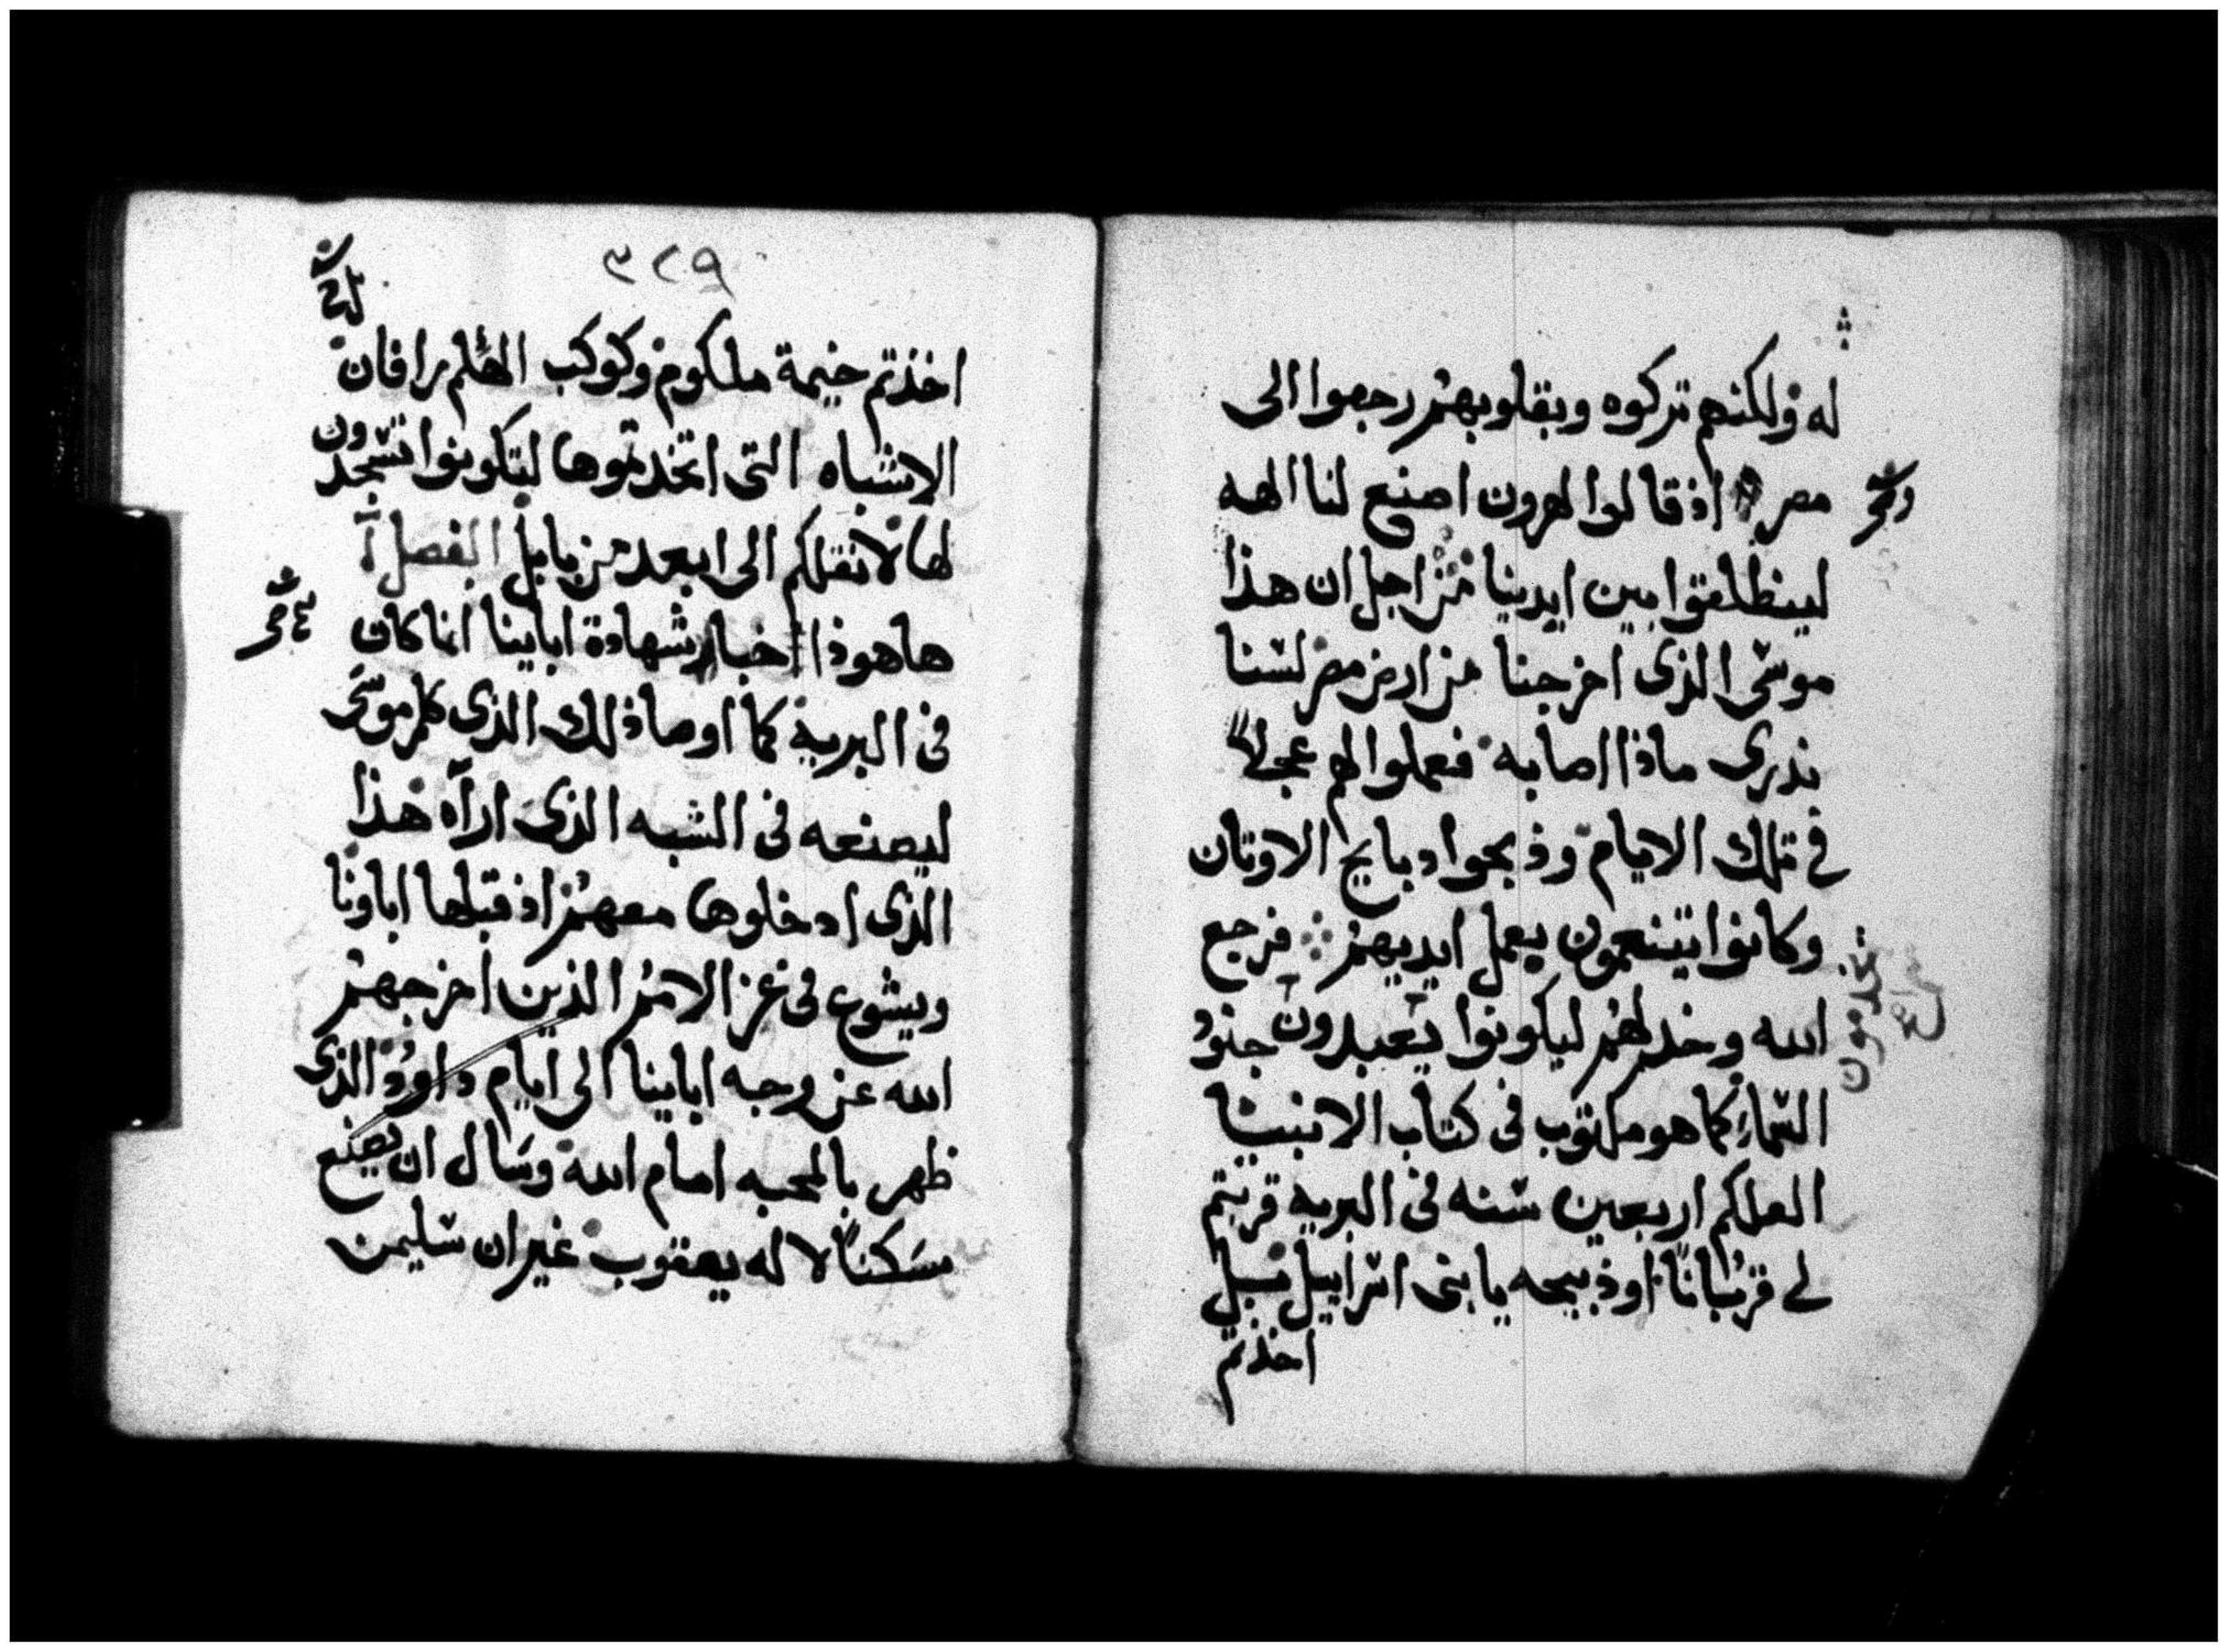 له ولكنهم تركوه وبقلوبهم رجعوا الى
مصر اذ قالوا لهرون اصنع لنا الهه
لينطلقوا بين ايدينا من اجل ان هذا
موسى الذى اخرجنا من ارض مصر لسنا
ندرى ماذا اصابه فعملوا لهم عجلاً
فى تلك الايام وذبحوا دبايح الاوتان
وكانوا يتنعمون بعمل ايديهم فرجع
الله وخدلهم ليكونوا يتعبدون جنود
السماء كما هو مكتوب فى كتاب الانبيا
العلكم اربعين سنه فى البريه قربتم
لى قرباناً او ذبيحه يا بنى اسراييل بل
اخذتم
٣٢٩
اخذتم خيمة ملكوم وكوكب الهكم رافان
الاشباه التى اتخدتموها لتكونوا تسجدون
لها لانقلكم الى ابعد من بابل الفصل
هاهوذا اخبار شهادة اباينا انا كان
فى البرية كما اوصا ذلك الذى كلم موسى
ليصنعه فى الشبه الذى اراه هذا
الذى ادخلوها معهم اذ قبلها اباونا
ويشوع فى عز الامم الذين اخرجهم
الله عن وجه اباينا الى ايام داوود الذى
ظهر بالمحبه امام الله وسال ان يصنع
مسكناً لاله يعقوب غير ان سليمن